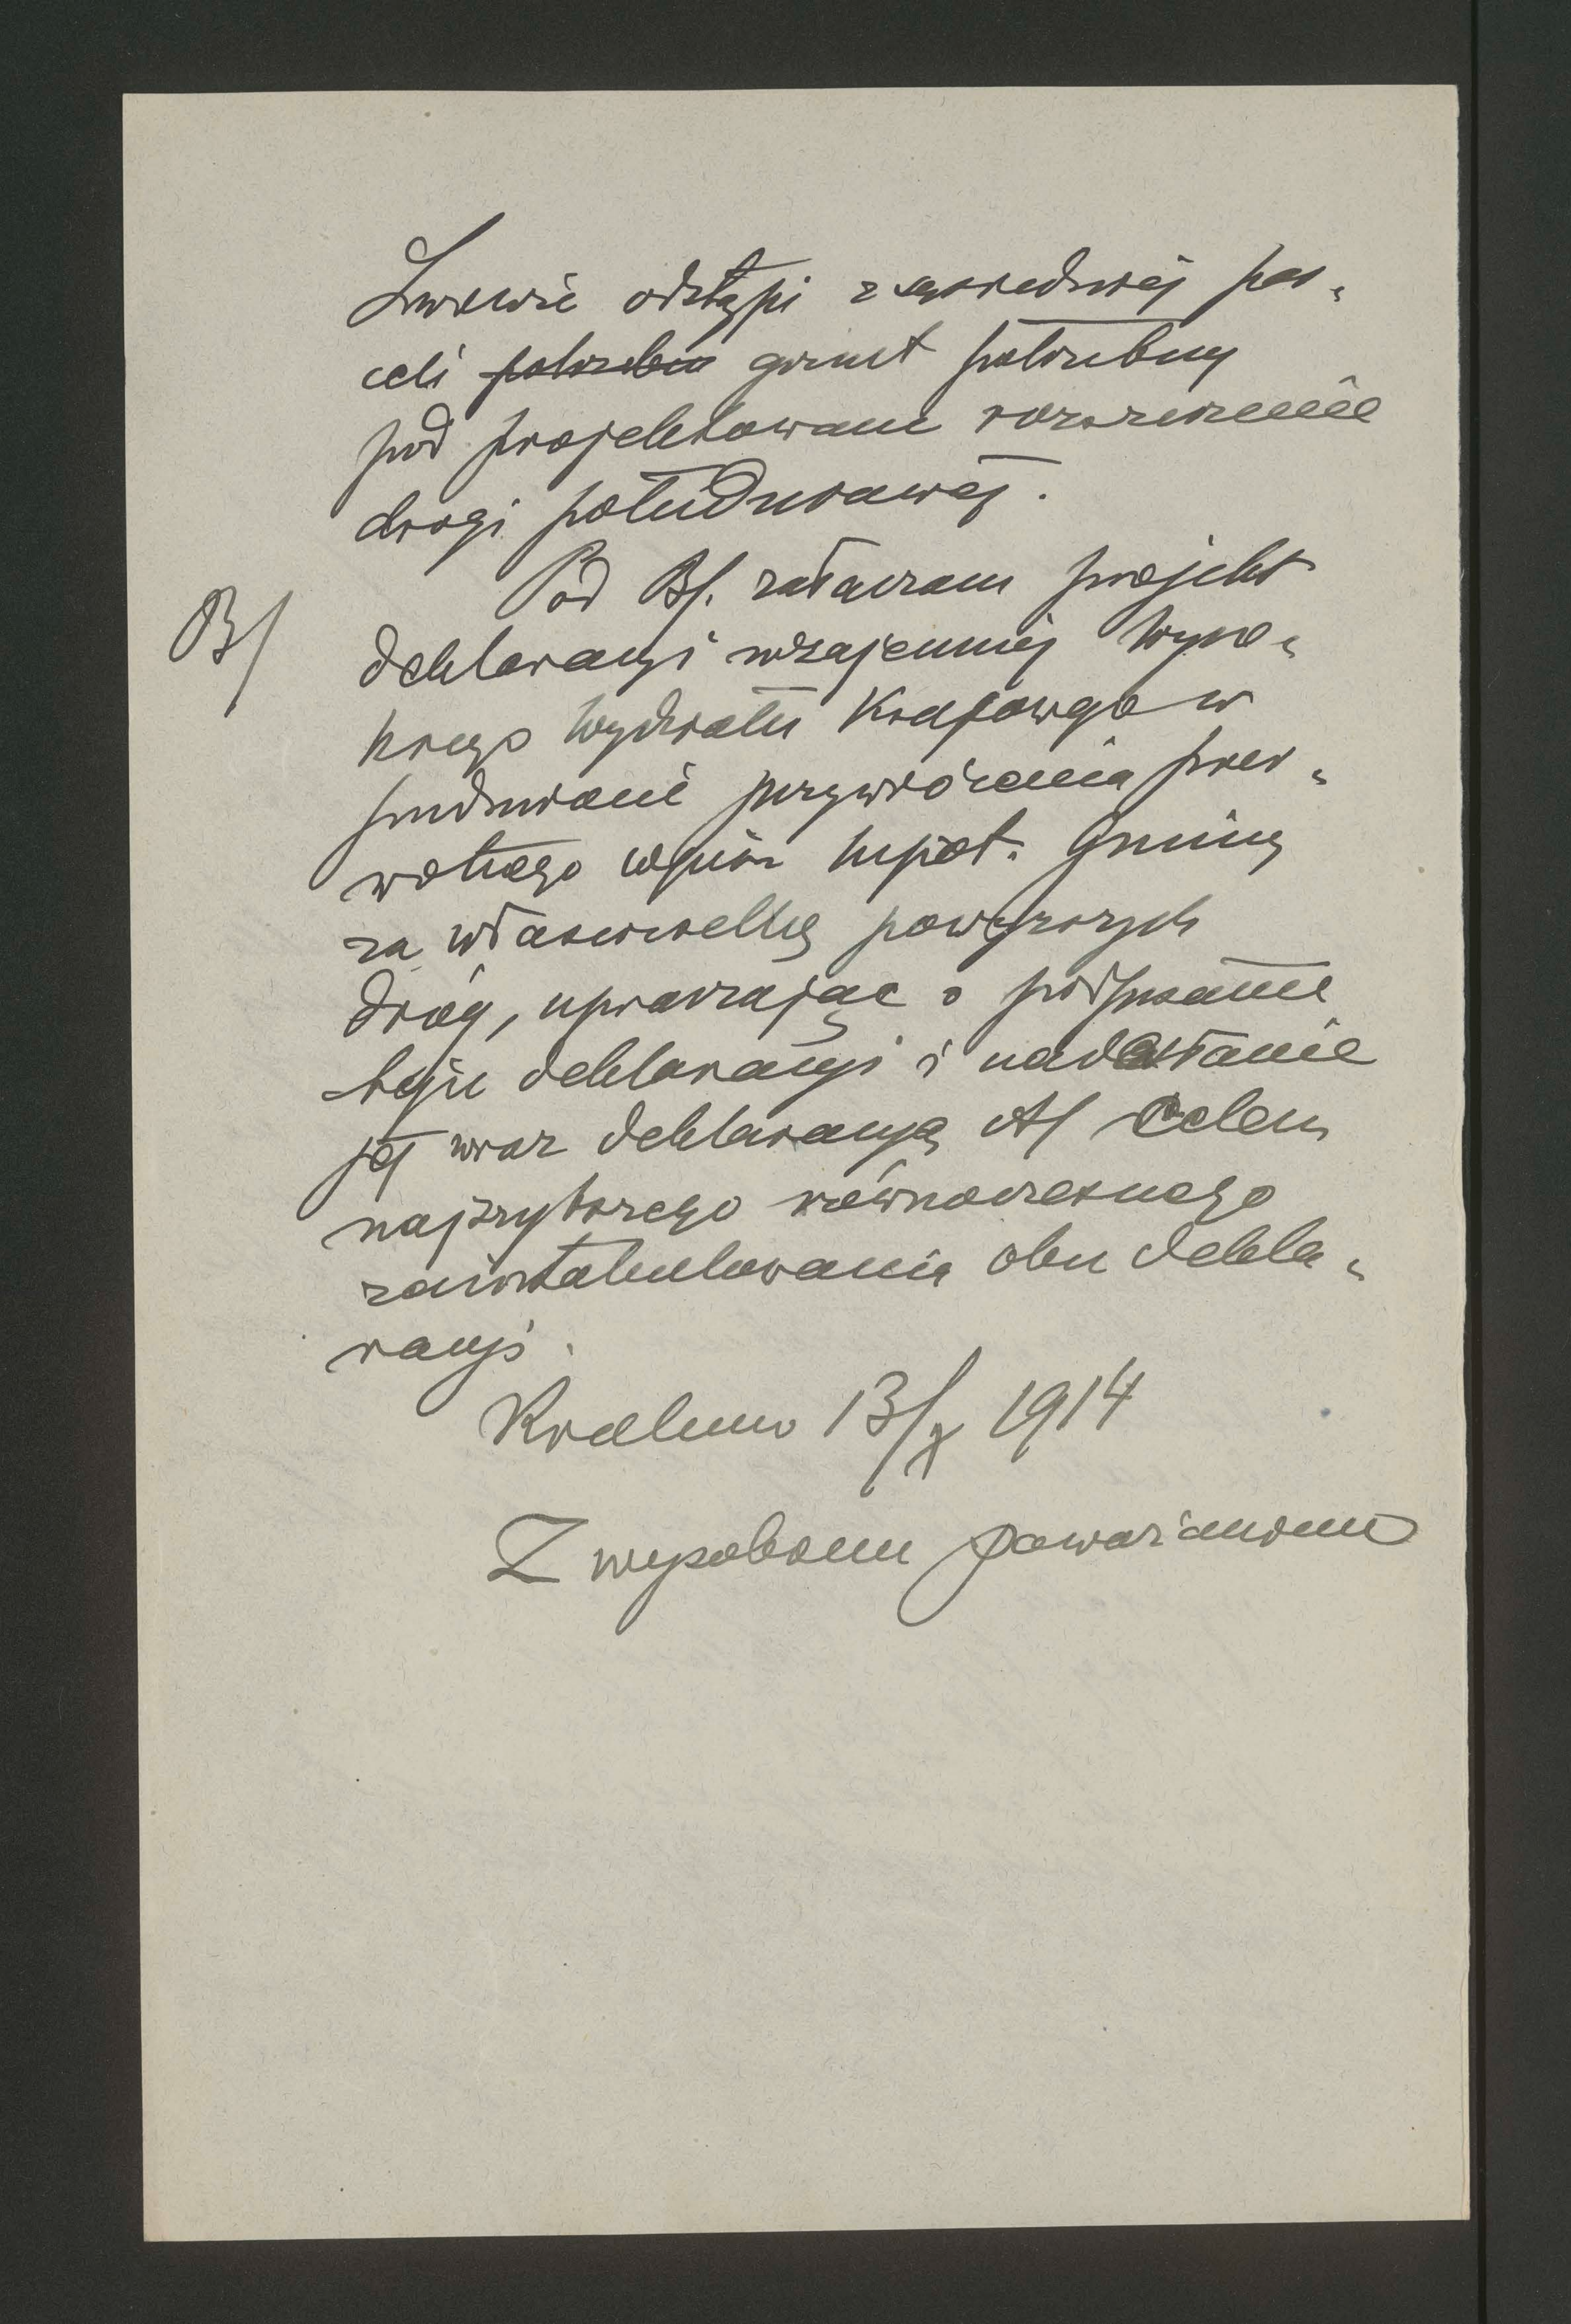 Lwowie odstąpi z sąsiedniej par„
celi potrzebn grunt potrzebny
pod projektowane rozszerzenie
drogi południowej.
B/ Pod B/. załączam projekt
deklaracyi wzajemnej Wyso„
kiego Wydziału Krajowego w
przedmiocie przywrócenia pier„
wotnego wpisu hipot. Gminy
za właścicielkę powyższych
dróg, upraszając o podpisanie
tejże deklaracyi i nadesłanie
jej wraz deklaracyą A/ celem
najszybszego równoczesnego
zaintabulowania obu dekla„
racyi.
Kraków 13/X 1914
Z wysokiem poważaniem